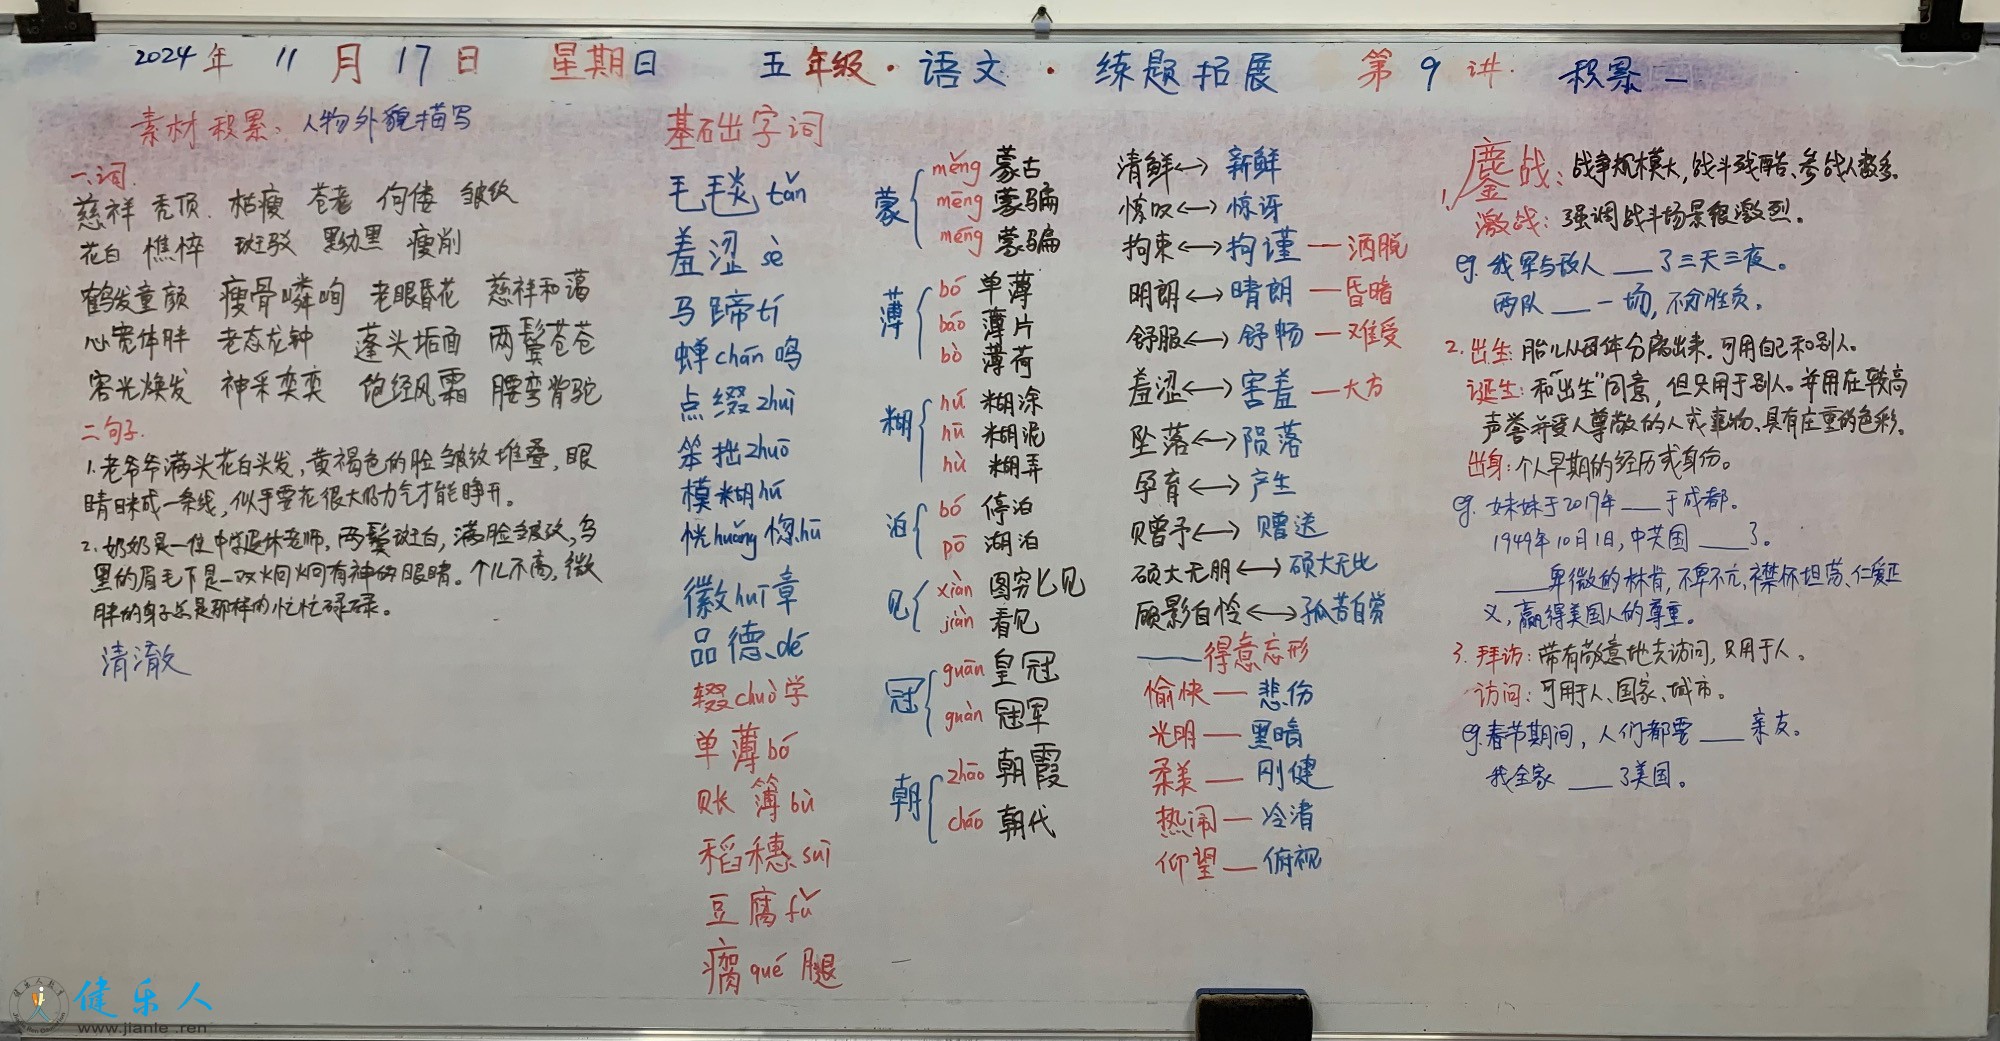 2024年 11月17日 星期日 五年级·语文·练题拓展 第9讲 积累一
素材积累：人物外貌描写
一、词.
慈祥 秃顶 枯瘦 苍老 佝偻 皱纹
花白 憔悴 斑驳 黝黑 瘦削
鹤发童颜 瘦骨嶙峋 老眼昏花 慈祥和蔼
心宽体胖 老态龙钟 蓬头垢面 两鬓苍苍
容光焕发 神采奕奕 饱经风霜 腰弯背驼
二句子.
1.老爷爷满头花白头发，黄褐色的脸皱纹堆叠，眼
睛眯成一条线，似乎要花很大的力气才能睁开。
2.奶奶是一位中学退休老师，两鬓斑白，满脸皱纹，乌
黑的眉毛下是一双炯炯有神的眼睛。个儿不高，微
胖的身子总是那样的忙忙碌碌。
清澈
基础字词
毛毯 tǎn
羞涩 sè
马蹄 tí
蝉chán鸣
点缀zhuì
笨拙zhuō
模糊hú
恍huǎng惚hū
徽huī章
品德dé
辍chuò学
单薄bó
账簿bù
稻穗suì
豆腐fǔ
瘸qué腿
蒙
měng 蒙古
mēng 蒙骗
mēng 蒙骗
薄
bó 单薄
báo 薄片
bò 薄荷
糊
hú 糊涂
hū 糊泥
hù 糊弄
泊
bó 停泊
pō 湖泊
见
xiàn 图穷匕见
jiàn 看见
冠
guān 皇冠
guàn 冠军
朝
zhāo 朝霞
cháo 朝代
清鲜↔新鲜
惊叹↔惊讶
拘束↔拘谨—洒脱
明朗↔晴朗—昏暗
舒服↔舒畅—难受
羞涩↔害羞—大方
坠落↔陨落
孕育↔产生
赠予↔赠送
硕大无朋↔硕大无比
顾影自怜↔孤芳自赏
——得意忘形
愉快—悲伤
光明—黑暗
柔美—刚健
热闹—冷清
仰望—俯视
1、鏖战：战争规模大，战斗残酷、参战人数多。
激战：强调战斗场景很激烈。
eg.我军与敌人___了三天三夜。
两队___一场，不分胜负。
2.出生：胎儿从母体分离出来，可用自己和别人。
诞生：和“出生”同意，但只用于别人。并用在较高
声誉并受人尊敬的人或事物、具有庄重的色彩。
出身：个人早期的经历或身份。
eg.妹妹于2019年___于成都.
1949年10月1日，中英国___了。
___卑微的林肯，不卑不亢、襟怀坦荡、仁爱正
义，赢得美国人的尊重。
3.拜访：带有敬意地去访问，只用于人。
访问：可用于人、国家、城市。
eg.春节期间，人们都要___亲友。
我全家___了美国。
健乐人
www.jianle.ren